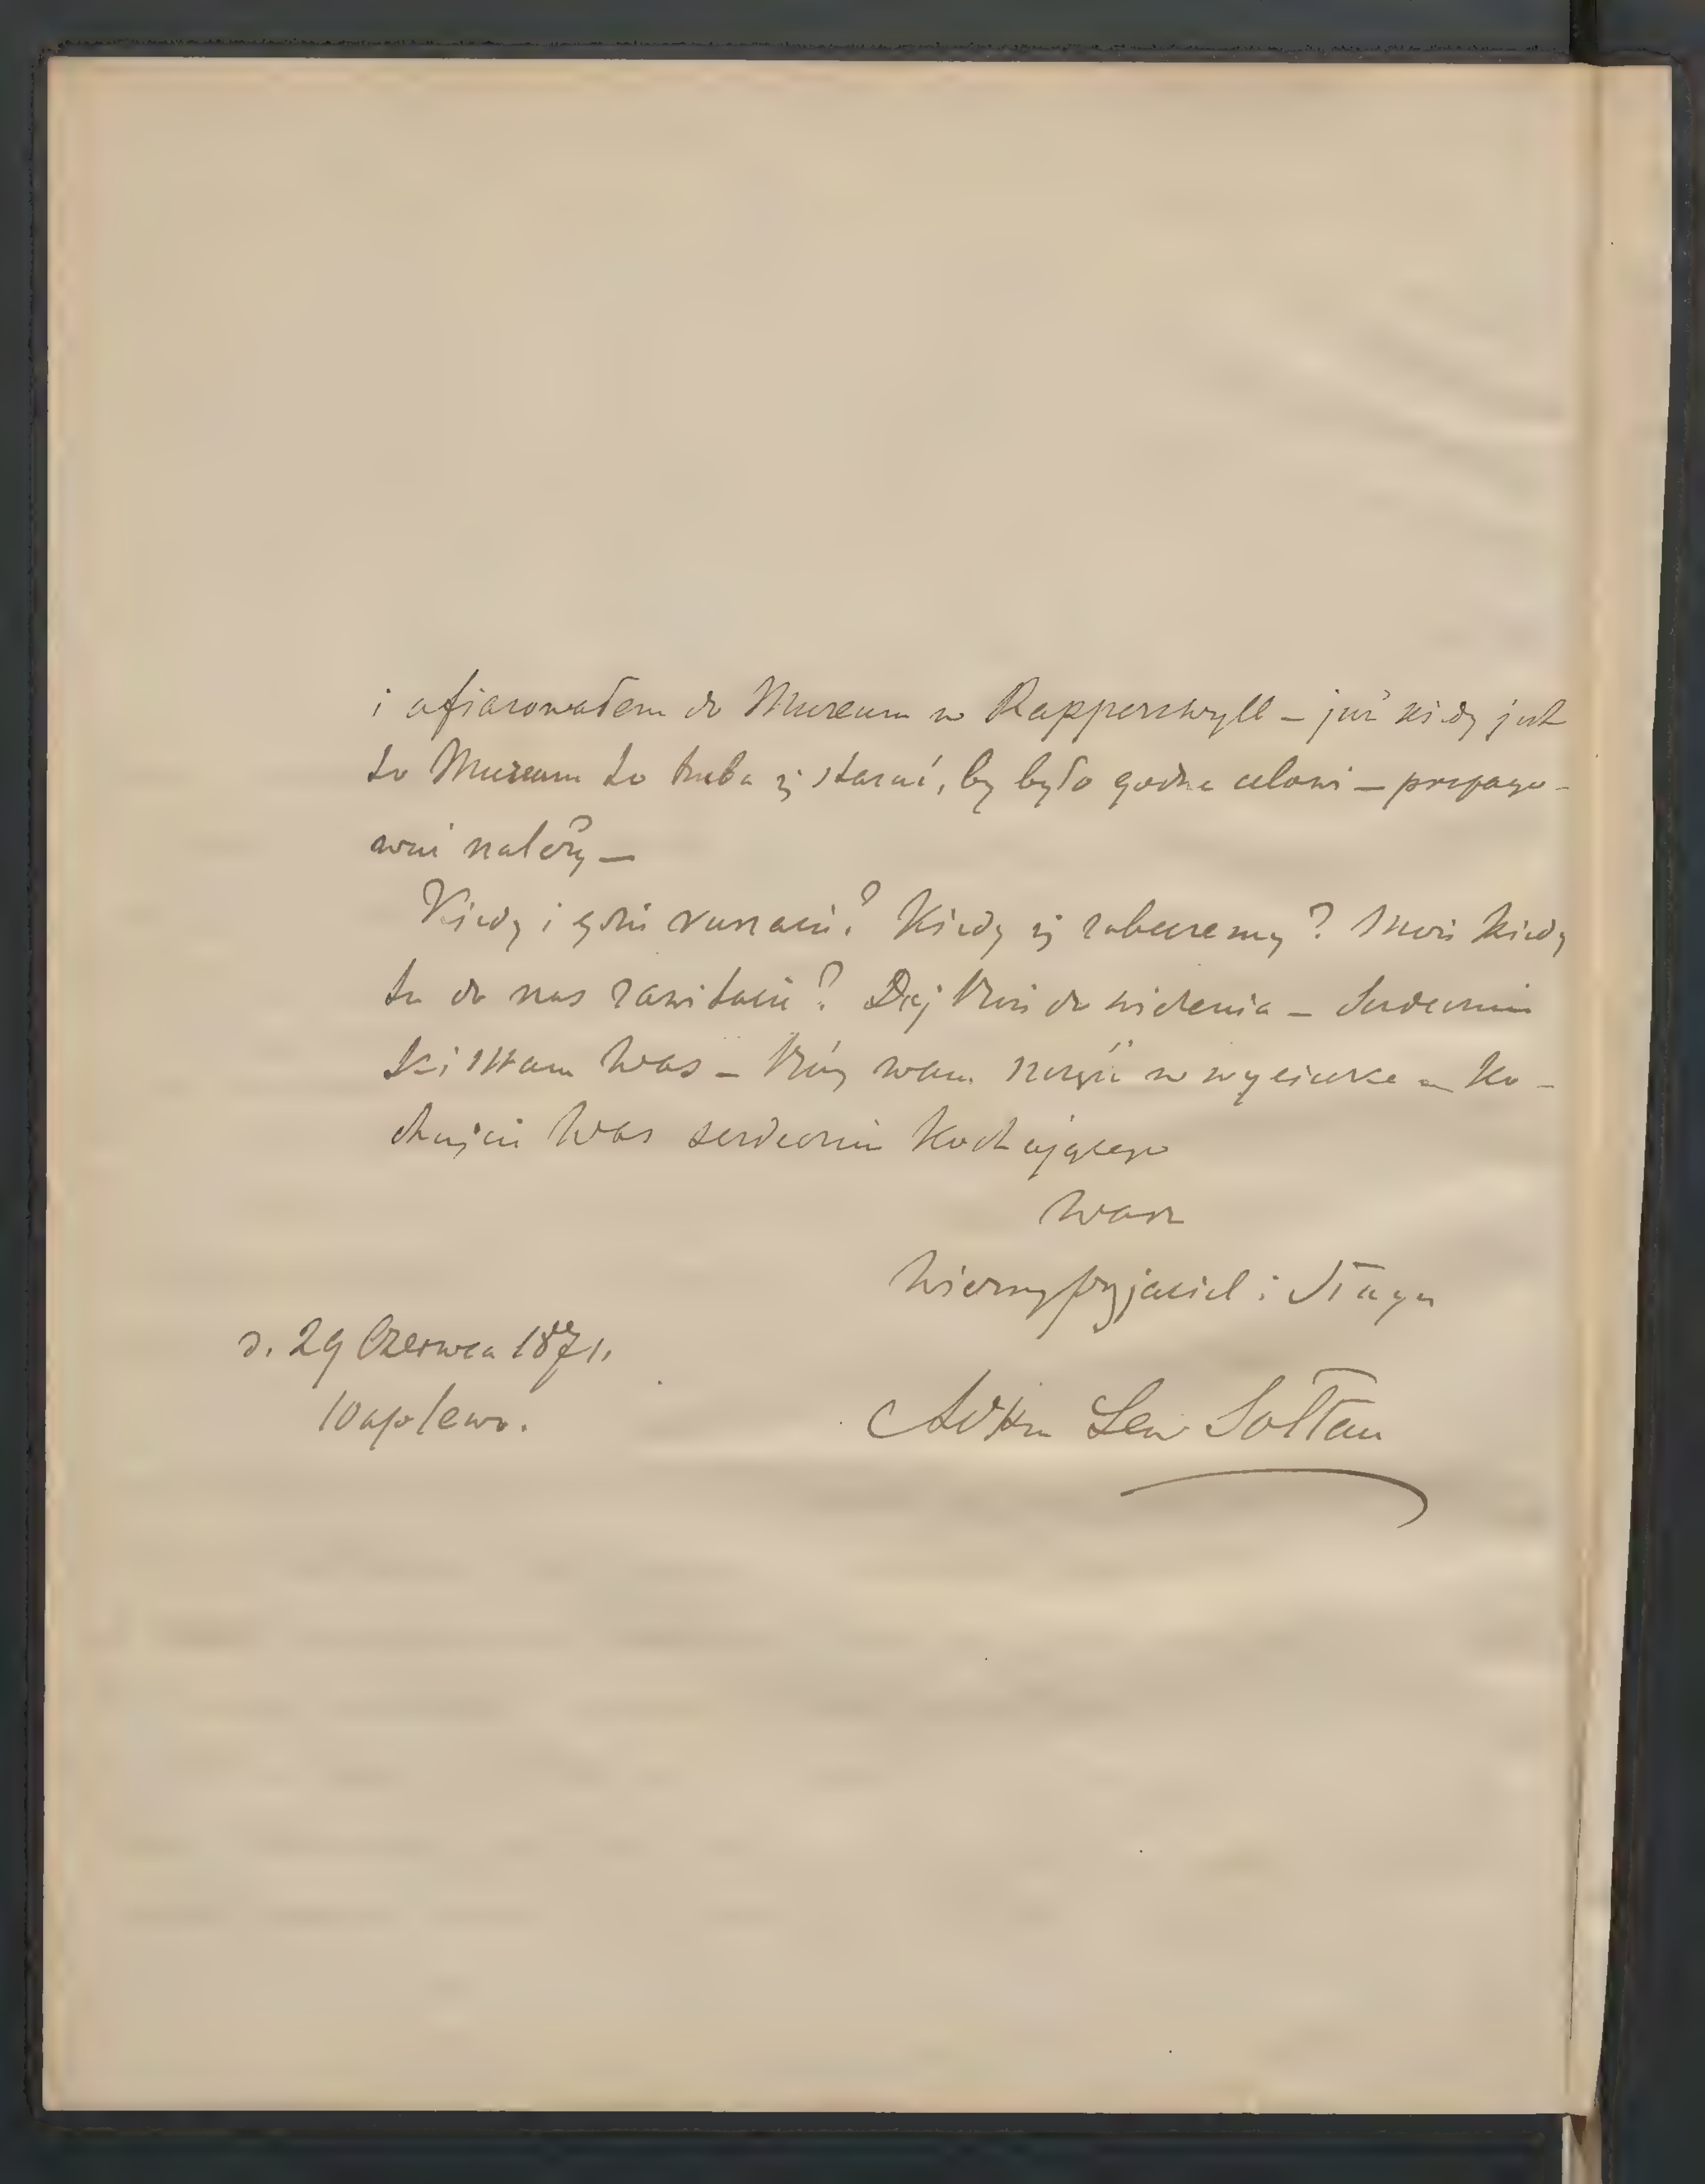 i ofiarowałem do Muzeum w Rapperswyll – już kiedy jest
to Muzeum to trzeba się starać, by było godne celowi – propago-
wać należy –
Kiedy i gdzie ruszacie? Kiedy się zobaczemy? Może kiedy
tu do nas zawitacie? Daj Boże do widzenia – Serdecznie
ściskam Was – Bóg wam szczęść w wycieczce – Ko-
chajcie Was serdecznie kochającego
Wasz
Wierny przyjaciel i Sługa
d. 29 Czerwca 1871.
Waplewo.
Adam Lew Sołtan